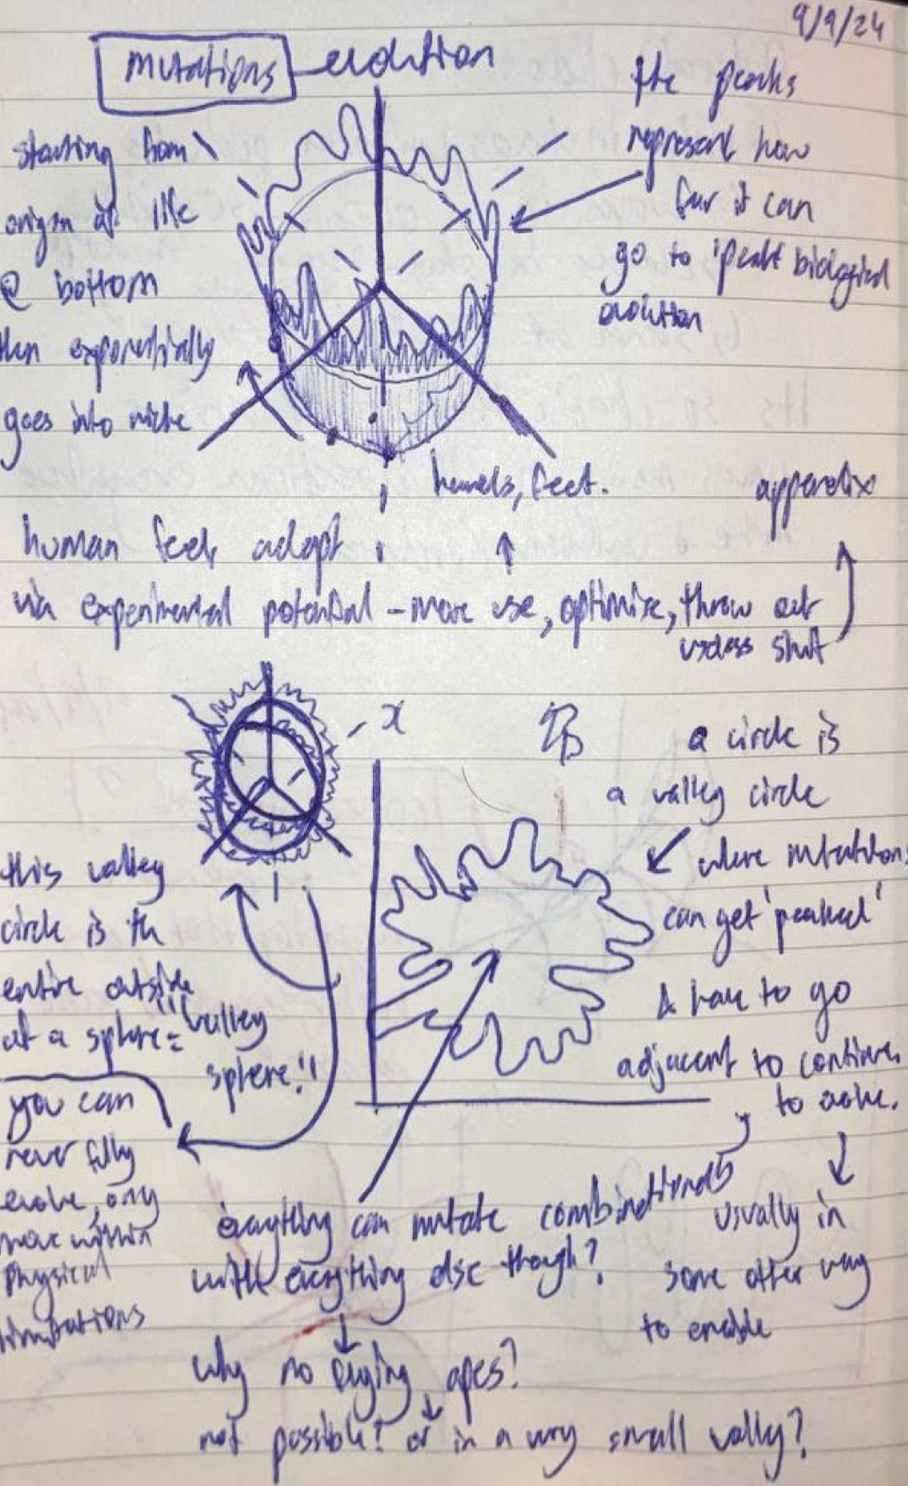 9/9/24
mutations - evolution
the peaks
represent how
far it can
go to 'peak' biological
evolution
starting from
origin of life
@ bottom
then exponentially
goes into niche
hands, feet.
appendix
human feet adapt
via experimental potential - more use, optimise, throw out
useless shit
x
a circle is
a valley circle
where mutations
can get 'peaked'
& have to go
adjacent to continue
to evolve.
usually in
some other way
to enable
this valley
circle is the
entire outside
of a sphere = "valley
sphere!"
you can
never fully
evolve, only
move within
physical
limitations
everything can mutate combinationally
with everything else though?
why no flying apes?
not possible? or in a very small valley?